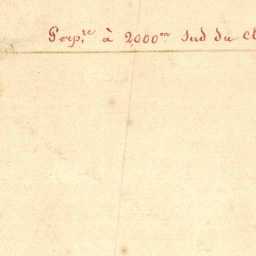 Perp.re à 2000m Sud du